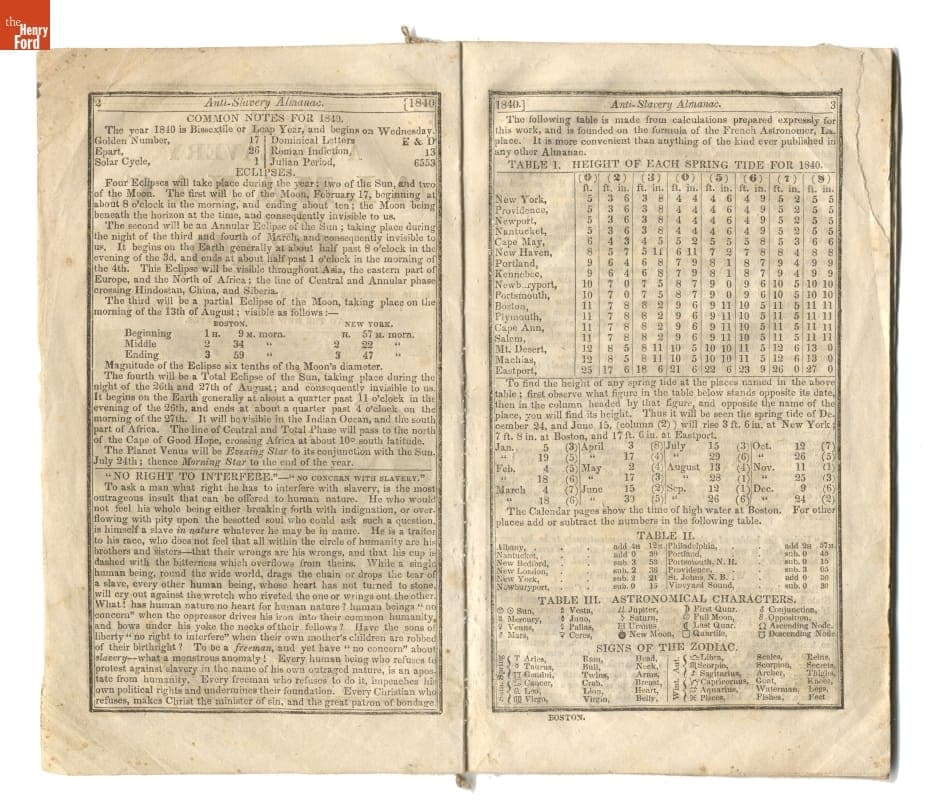 the
Henry
Ford
2 Anti-Slavery Almanac. [1840
COMMON NOTES FOR 1840.
The year 1840 is Bissextile or Leap Year, and begins on Wednesday.
Golden Number, 17 Dominical Letters E & D
Epart, 26 Roman Indiction, 13
Solar Cycle, 1 Julian Period, 6553
ECLIPSES.
Four Eclipses will take place during the year; two of the Sun, and two
of the Moon. The first will be of the Moon, February 17, beginning at
about 8 o'clock in the morning, and ending about ten; the Moon being
beneath the horizon at the time, and consequently invisible to us.
The second will be an Annular Eclipse of the Sun; taking place during
the night of the third and fourth of March, and consequently invisible to
us. It begins on the Earth generally at about half past 8 o'clock in the
evening of the 3d, and ends at about half past 1 o'clock in the morning of
the 4th. This Eclipse will be visible throughout Asia, the eastern part of
Europe, and the North of Africa; the line of Central and Annular phase
crossing Hindostan, China, and Siberia.
The third will be a partial Eclipse of the Moon, taking place on the
morning of the 13th of August; visible as follows:—
BOSTON. NEW YORK.
Beginning 1 H. 9 M. morn. H. 57 m. morn.
Middle 2 34 " 2 22 "
Ending 3 59 " 3 47 "
Magnitude of the Eclipse six tenths of the Moon's diameter.
The fourth will be a Total Eclipse of the Sun, taking place during the
night of the 26th and 27th of August; and consequently invisible to us.
It begins on the Earth generally at about a quarter past 11 o'clock in the
evening of the 26th, and ends at about a quarter past 4 o'clock on the
morning of the 27th. It will be visible in the Indian Ocean, and the south
part of Africa. The line of Central and Total Phase will pass to the north
of the Cape of Good Hope, crossing Africa at about 10° south latitude.
The Planet Venus will be Evening Star to its conjunction with the Sun,
July 24th; thence Morning Star to the end of the year.
"NO RIGHT TO INTERFERE."—"NO CONCERN WITH SLAVERY."
To ask a man what right he has to interfere with slavery, is the most
outrageous insult that can be offered to human nature. He who would
not feel his whole being either breaking forth with indignation, or over-
flowing with pity upon the besotted soul who could ask such a question,
is himself a slave in nature whatever he may be in name. He is a traitor
to his race, who does not feel that all within the circle of humanity are his
brothers and sisters—that their wrongs are his wrongs, and that his cup is
dashed with the bitterness which overflows from theirs. While a single
human being, round the wide world, drags the chain or drops the tear of
a slave, every other human being, whose heart has not turned to stone,
will cry out against the wretch who riveted the one or wrings out the other.
What! has human nature no heart for human nature? human beings "no
concern" when the oppressor drives his iron into their common humanity,
and bows under his yoke the necks of their fellows? Have the sons of
liberty "no right to interfere" when their own mother's children are robbed
of their birthright? To be a freeman, and yet have "no concern" about
slavery—what a monstrous anomaly! Every human being who refuses to
protest against slavery in the name of his own outraged nature, is an apos-
tate from humanity. Every freeman who refuses to do it, impeaches his
own political rights and undermines their foundation. Every Christian who
refuses, makes Christ the minister of sin, and the great patron of bondage
1840.] Anti-Slavery Almanac. 3
The following table is made from calculations prepared expressly for
this work, and is founded on the formula of the French Astronomer, La
place. It is more convenient than anything of the kind ever published in
any other Almanac.
TABLE I. HEIGHT OF EACH SPRING TIDE FOR 1840.
(2) (3) (5) (6) (7) (8)
ft. ft. in. ft. in. ft. in. ft. in. ft. in. ft. in. ft. in.
New York, 5 3 6 3 8 4 4 4 6 4 9 5 2 5 5
Providence, 5 3 6 3 8 4 4 4 6 4 9 5 2 5 5
Newport, 5 3 6 3 8 4 4 4 6 4 9 5 2 5 5
Nantucket, 5 3 6 3 8 4 4 4 6 4 9 5 2 5 5
Cape May, 6 4 3 4 5 5 2 5 5 5 8 5 3 6 6
New Haven, 8 5 7 5 11 6 11 7 2 7 8 8 4 8 8
Portland, 9 6 4 6 8 7 9 8 1 8 7 9 4 9 9
Kennebec, 9 6 4 6 8 7 9 8 1 8 7 9 4 9 9
Newb..ryport, 10 7 0 7 5 8 7 9 0 9 6 10 5 10 10
Portsmouth, 10 7 0 7 5 8 7 9 0 9 6 10 5 10 10
Boston, 11 7 8 8 2 9 6 9 11 10 5 11 5 11 11
Plymouth, 11 7 8 8 2 9 6 9 11 10 5 11 5 11 11
Cape Ann, 11 7 8 8 2 9 6 9 11 10 5 11 5 11 11
Salem, 11 7 8 8 2 9 6 9 11 10 5 11 5 11 11
Mt. Desert, 12 8 5 8 11 10 5 10 10 11 5 12 6 13 0
Machias, 12 8 5 8 11 10 5 10 10 11 5 12 6 13 0
Eastport, 25 17 6 18 6 21 6 22 6 23 9 26 0 27 0
To find the height of any spring tide at the places named in the above
table; first observe what figure in the table below stands opposite its date,
then in the column headed by that figure, and opposite the name of the
place, you will find its height. Thus it will be seen the spring tide of De-
cember 24, and June 15, (column (2)) will rise 3 ft. 6 in. at New York;
7 ft. 8 in. at Boston, and 17 ft. 6 in. at Eastport.
Jan. 5 (3) April 3 (8) July 15 (3) Oct. 12 (7)
" 19 (5) " 17 (4) " 29 (6) " 26 (5)
Feb. 4 (5) May 2 (4) August 13 (4) Nov. 11 (1)
" 18 (6) " 17 (3) " 28 (1) " 25 (3)
March 4 (7) June 15 (2) Sep. 12 (1) Dec. 9 (6)
" 18 (6) " 30 (5) " 26 (6) " 24 (2)
The Calendar pages show the time of high water at Boston. For other
places add or subtract the numbers in the following table.
TABLE II.
Albany, add 4H 12M Philadelphia, add 2H 57M.
Nantucket, add 0 30 Portland, sub. 0 45
New Bedford, sub. 3 53 Portsmouth, N. H. sub. 0 15
New London, sub. 2 36 Providence, sub. 3 05
New York, sub. 2 21 St. Johns, N. B. add 0 30
Newburyport, sub. 0 15 Vineyard Sound, sub. 0 30
TABLE III. ASTRONOMICAL CHARACTERS.
Sun, Vesta, Jupiter, First Quar. Conjunction,
Mercury, Juno, Saturn, Full Moon, Opposition,
Venus, Pallas, Uranus Last Quar. Ascending Node.
Mars, Ceres, New Moon, Quartile, Descending Node
SIGNS OF THE ZODIAC.
Aries, Ram, Head, Libra, Scales, Reins,
Taurus, Bull, Neck, Scorpio, Scorpion, Secrets,
Gemini, Twins, Arms, Sagitarius, Archer, Thighs,
Cancer, Crab, Breast, Capricornus, Goat, Knees,
Leo, Lion, Heart, Aquarius, Waterman, Legs,
Virgo, Virgin, Belly, Pisces, Fishes, Feet
BOSTON.